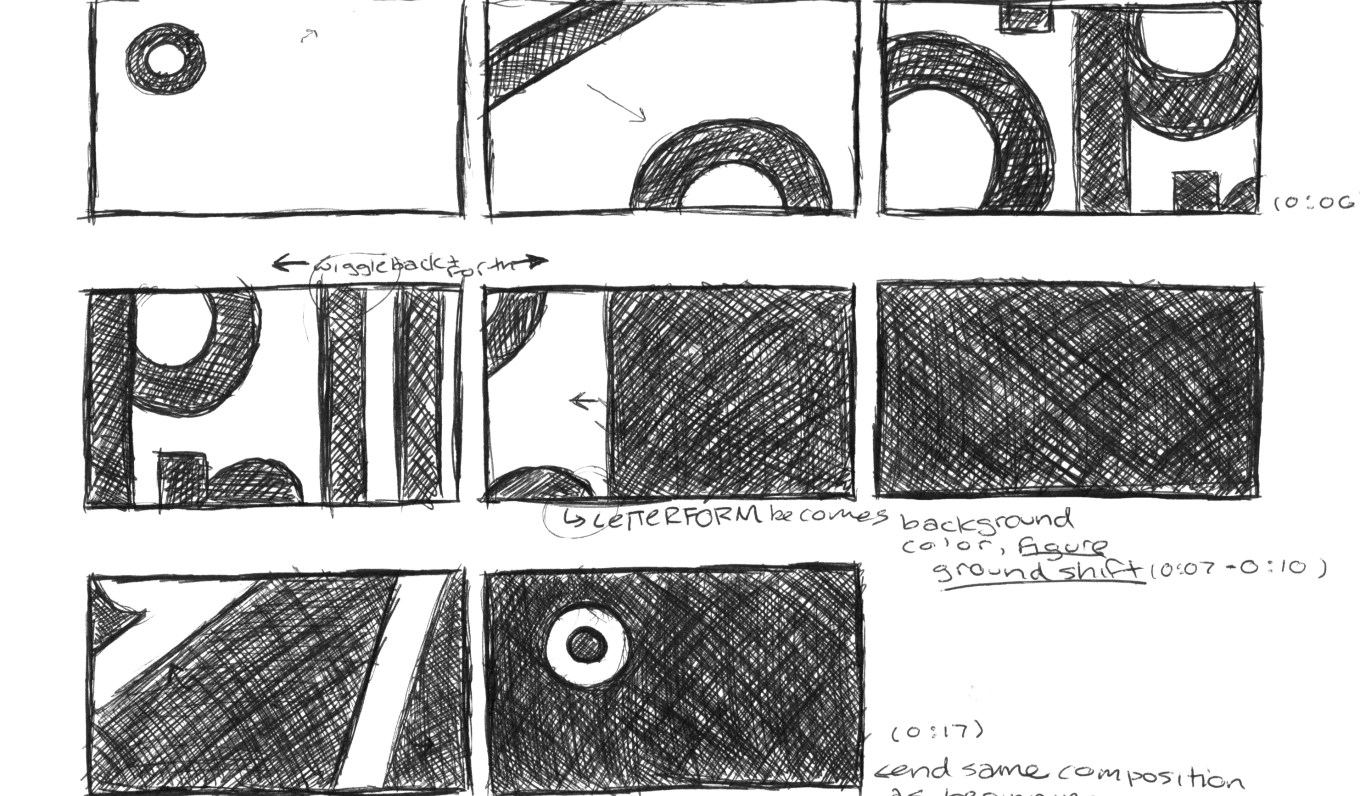 (0:06
wiggle back + forth
↳ LETTERFORM becomes background
color, figure
ground shift (0:07-0:10)
(0:17)
end same composition
as